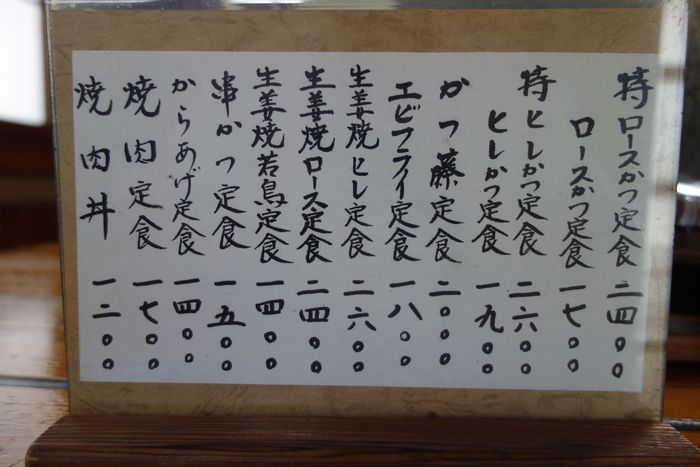 特ロースかつ定食 二四〇〇
ロースかつ定食 一七〇〇
特ヒレかつ定食 二六〇〇
ヒレかつ定食 一九〇〇
かつ藤定食 二〇〇〇
エビフライ定食 一八〇〇
生姜焼ヒレ定食 二六〇〇
生姜焼ロース定食 二四〇〇
生姜焼若鳥定食 一四〇〇
串かつ定食 一五〇〇
からあげ定食 一四〇〇
焼肉定食 一七〇〇
焼肉丼 一二〇〇